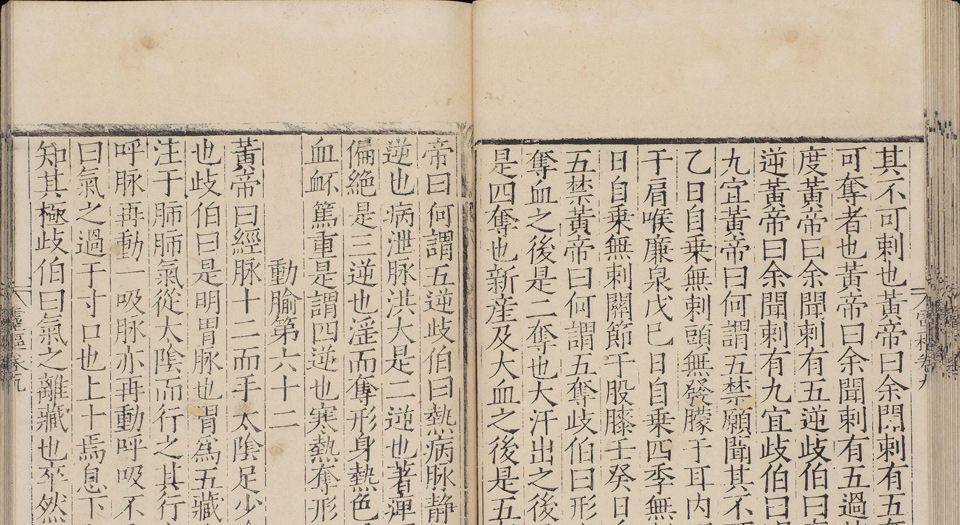 其不可刺也黃帝曰余聞刺有五
可奪者也黃帝曰余聞刺有五過
度黃帝曰余聞刺有五逆歧伯曰
逆黃帝曰余聞刺有九宜歧伯曰
九宜黃帝曰何謂五禁願聞其不
乙日自乗無刺頭無發矇于耳内
于肩喉廉泉戊巳日自乗四季無
日自乗無刺關節于股膝壬癸日
五禁黃帝曰何謂五奪歧伯曰形
奪血之後是二奪也大汗出之後
是四奪也新産及大血之後是五
帝曰何謂五逆歧伯曰熱病脉静
逆也病泄脉洪大是二逆也著痺
偏絶是三逆也淫而奪形身熱色
血衃篤重是謂四逆也寒熱奪形
動腧第六十二
黃帝曰經脉十二而手太陰足少
也歧伯曰是明胃脉也胃為五藏
注于肺肺氣從太陰而行之其行
呼脉再動一吸脉亦再動呼吸不
曰氣之過于寸口也上十焉息下
知其極歧伯曰氣之離藏也卒然
卷九